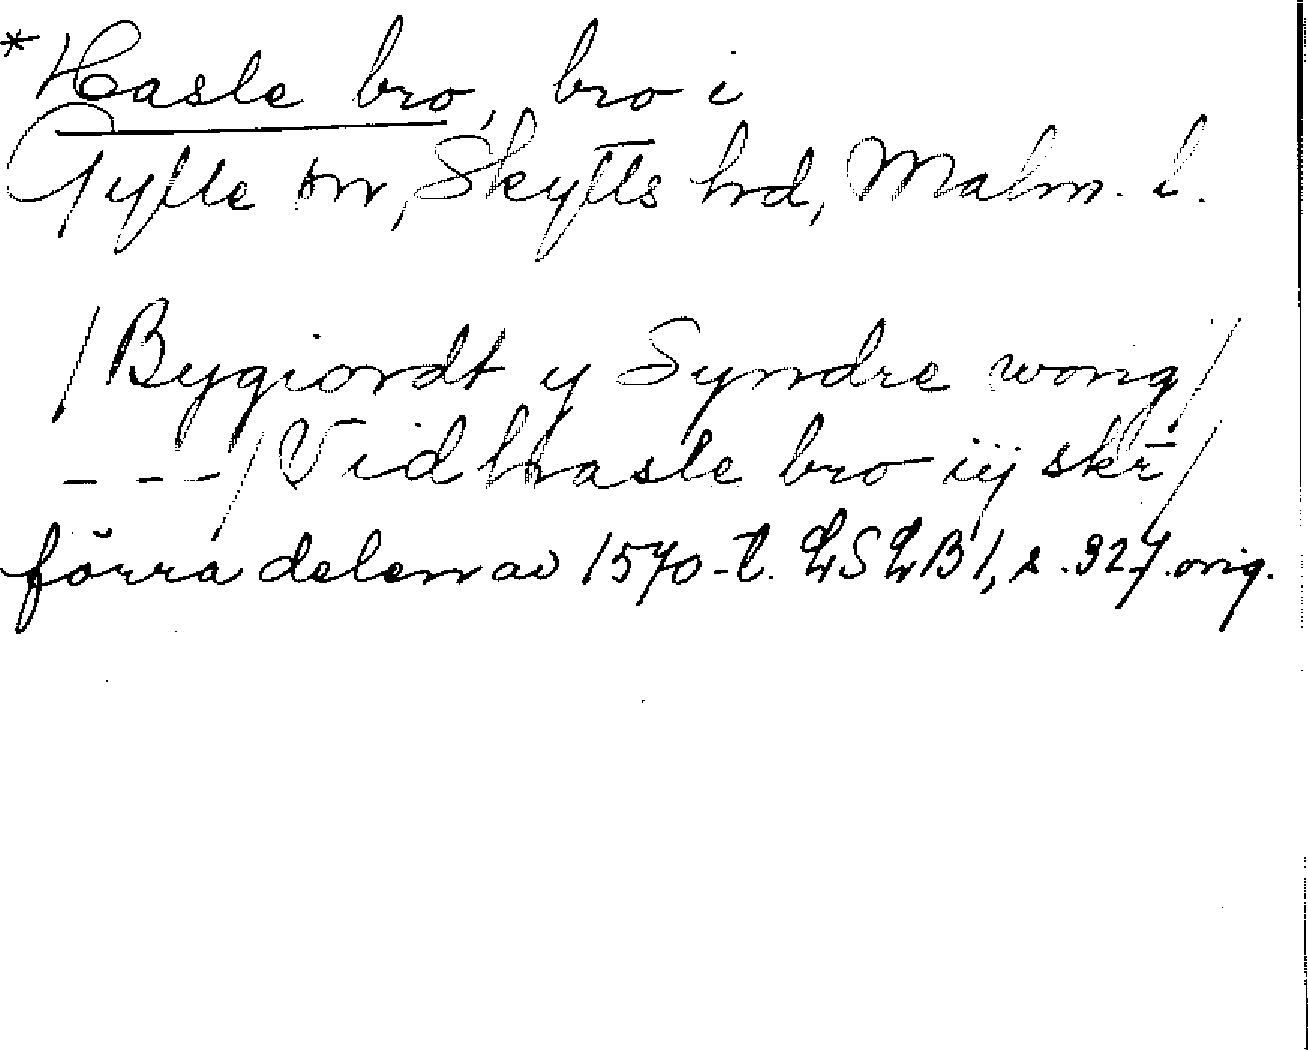 *Hasle bro, bro i
Gylle sn, Skytts hrd, Malm. l.
/Bygiordt y Syndre wong/
---/Vid hasle bro iij skr̄/
förra delen av 1570-t. LSLB1, s. 327. orig.